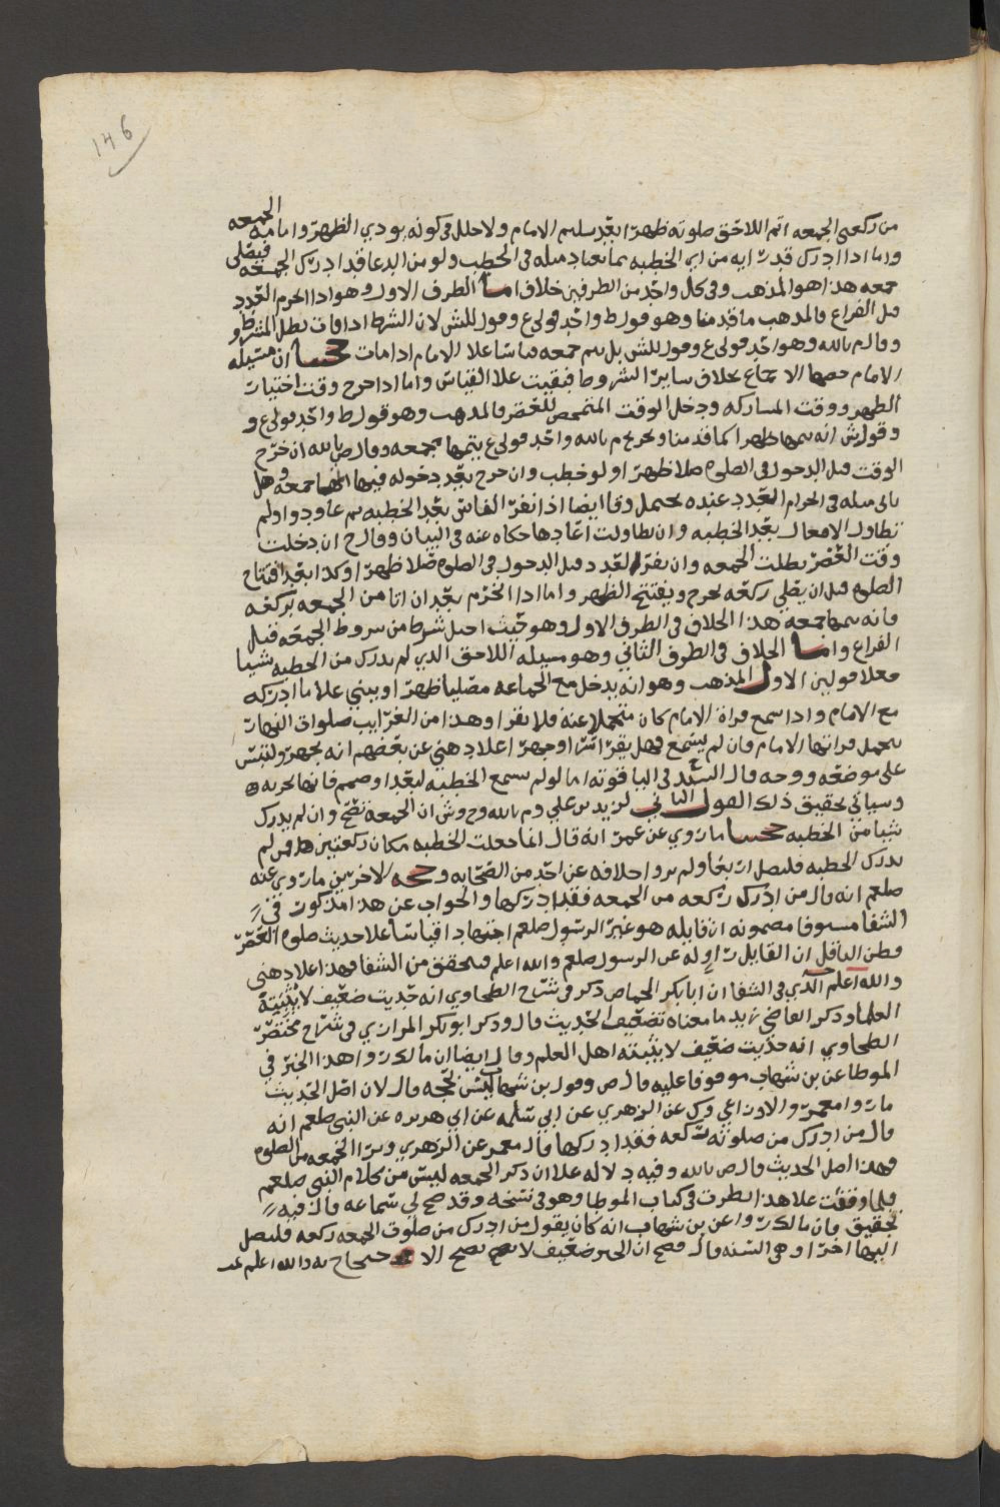 146
من ركعتي الجمعه اتم اللاحق صلوته ظهرا بعد تسليم الامام ولا خلل في كونه يودي الظهر وامامه الجمعه
واما اذا ادرك قدر ايه من اي الخطبه مما يعتاد مثله في الخطب ولو من الدعا فقد ادرك الجمعه فيصلي
جمعه هذا هو المذهب وفي كل واحد من الطرفين خلاف اما الطرف الاول وهو اذا انخرم العدد
قبل الفراغ فالمذهب ما قدمنا وهو قول ط واحد قولي ع وقول للش لان الشرط اذا فات بطل المشروط
وقال م بالله وهو احد قولي ع وقول للش بل يتم جمعه قياسا علا الامام اذا مات حجتنا ان مسيله
الامام خصها الاجماع بخلاف ساير الشروط فبقيت علا القياس واما اذا خرج وقت اختيار
الظهر ووقت المشاركه ودخل الوقت المتمحض للعصر فالمذهب وهو قول ط واحد قولي ع و
وقول ش انه يتمها ظهرا كما قدمنا وتخريج م بالله واحد قولي ع يتمها جمعه وقال ص بالله ان خرج
الوقت قبل الدخول في الصلوه صلا ظهرا ولو خطب وان خرج بعد دخوله فيها اتمها جمعه وهل
ياتي مثله في انخرام العدد عنده يحتمل وقا ايضا اذا نفر الناس بعد الخطبه ثم عاودوا ولم
تطاول الافعال بعد الخطبه وان تطاولت اعادها حكاه عنه في البيان وقال ح ان دخلت
وقت العصر بطلت الجمعه وان نفر العدد قبل الدخول في الصلوه صلا ظهرا وكذا بعد افتتاح
الصلوه قبل ان يصلي ركعه يخرج ويفتتح الظهر واما اذا انخرم بعد ان اتا من الجمعه بركعه
فانه يتمها جمعه هذا الخلاف في الطرف الاول وهو حيث اختل شرط من شروط الجمعه قبل
الفراغ واما الخلاف في الطرف الثاني وهو مسيله اللاحق الذي لم يدرك من الخطبه شيا
فعلا قولين الاول المذهب وهو انه يدخل مع الجماعه مصليا ظهرا ويبني علا ما ادركه
مع الامام واذا سمع قراة الامام كان متحملا عنه فلا يقرا وهذا من الغرايب صلوات النهار
يتحمل قراتها الامام فان لم يسمع فهل يقرا سرا او جهرا علا ذهني عن بعضهم انه يجهر ولتبس
على موضعه ووجه قال السيد في الياقوته اما لو لم يسمع الخطبه لبعد او صمم فانها تجزيه
وسياتي تحقيق ذلك القول الثاني لزيد بن علي وم بالله وح وش ان الجمعه تصح وان لم يدرك
شيا من الخطبه حجتنا ما روي عن عمر انه قال انما جعلت الخطبه مكان ركعتين فمن لم
يدرك الخطبه فليصل اربعا ولم يرو خلافه عن احد من الصحابه وحجه الاخرين ما روي عنه
صلعم انه قال من ادرك ركعه من الجمعه فقد ادركها والجواب عن هذا مذكور في
الشفا مسوفا مضمونه ان قايله هو غير الرسول صلعم اجتهادا قياسا علا حديث صلوه العصر
فظن الناقل ان القايل راوله عن الرسول صلعم والله اعلم فيحقق من الشفا فهذا علا ذهني
والله اعلم الذي في الشفا ان ابا بكر الجصاص ذكر في شرح الطحاوي انه حديث ضعيف لا يثبته
العلما وذكر القاضي زيد ما معناه تضعيف الحديث قال وذكر ابو بكر الرازي في شرح مختصر
الطحاوي انه حديث ضعيف لا يثبته اهل العلم وقال ايضا ان مالك روا هذا الخبر في
الموطا عن بن شهاب موقوفا عليه قال ص وقول بن شهاب ليس بحجه قال لان اصل الحديث
ما روا معمر والاوزاعي وك عن الزهري عن ابي سلمه عن ابي هريره عن النبي صلعم انه
قال من ادرك من صلوته ركعه فقد ادركها قال معمر عن الزهري ونرا الجمعه من الصلوه
فهذا اصل الحديث قال ص بالله وفيه دلاله علا ان ذكر الجمعه ليس من كلام النبي صلعم
فلما وقفت علا هذا نظرت في كتاب الموطا وهو في نسخه وقد صح لي سماعه قال فيه
تحقيق فان مالك روا عن بن شهاب انه كان يقول من ادرك من صلوه الجمعه ركعه فليصل
اليها اخرا وهي السنه قال فصح ان الخبر ضعيف لا يصح الاحتجاج به والله اعلم